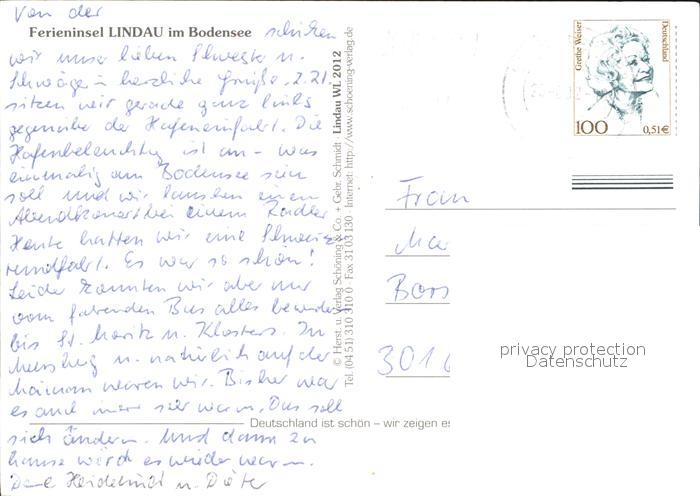 Von der
Ferieninsel LINDAU im Bodensee schicken
wir unser lieben Schwester u.
Schwägerin herzliche Grüße. Z.Zt.
sitzen wir gerade ganz links
gegenüber der Hafeneinfahrt. Die
Hafenbeleuchtung ist an - was
einmalig am Bodensee sein
soll und wir lauschen einem
Abendkonzert bei einem Radler
Heute hatten wir eine Schweiz
rundfahrt. Es war so schön!
Leider konnten wir aber nur
vom fahrenden Bus alles bewundern
bis St. Moritz u. Klosters. In
Meersburg u. natürlich auf der
Mainau waren wir. Bisher war
es auch immer sehr warm. Das soll
sich ändern. Und dann zu
hause wird es wieder warm.
Deine Heidelind u. Dieter
Deutschland ist schön – wir zeigen es
© Herst. u. Verlag Schöning & Co. + Gebr. Schmidt Lindau WL 2012
Tel. (04 51) 310 310 0 Fax 31 03 130 Internet: http://www.schoening-verlag.de
Grethe Weiser
Deutschland
100
0,51€
Frau
Ma
Bors
3016
privacy protection
Datenschutz